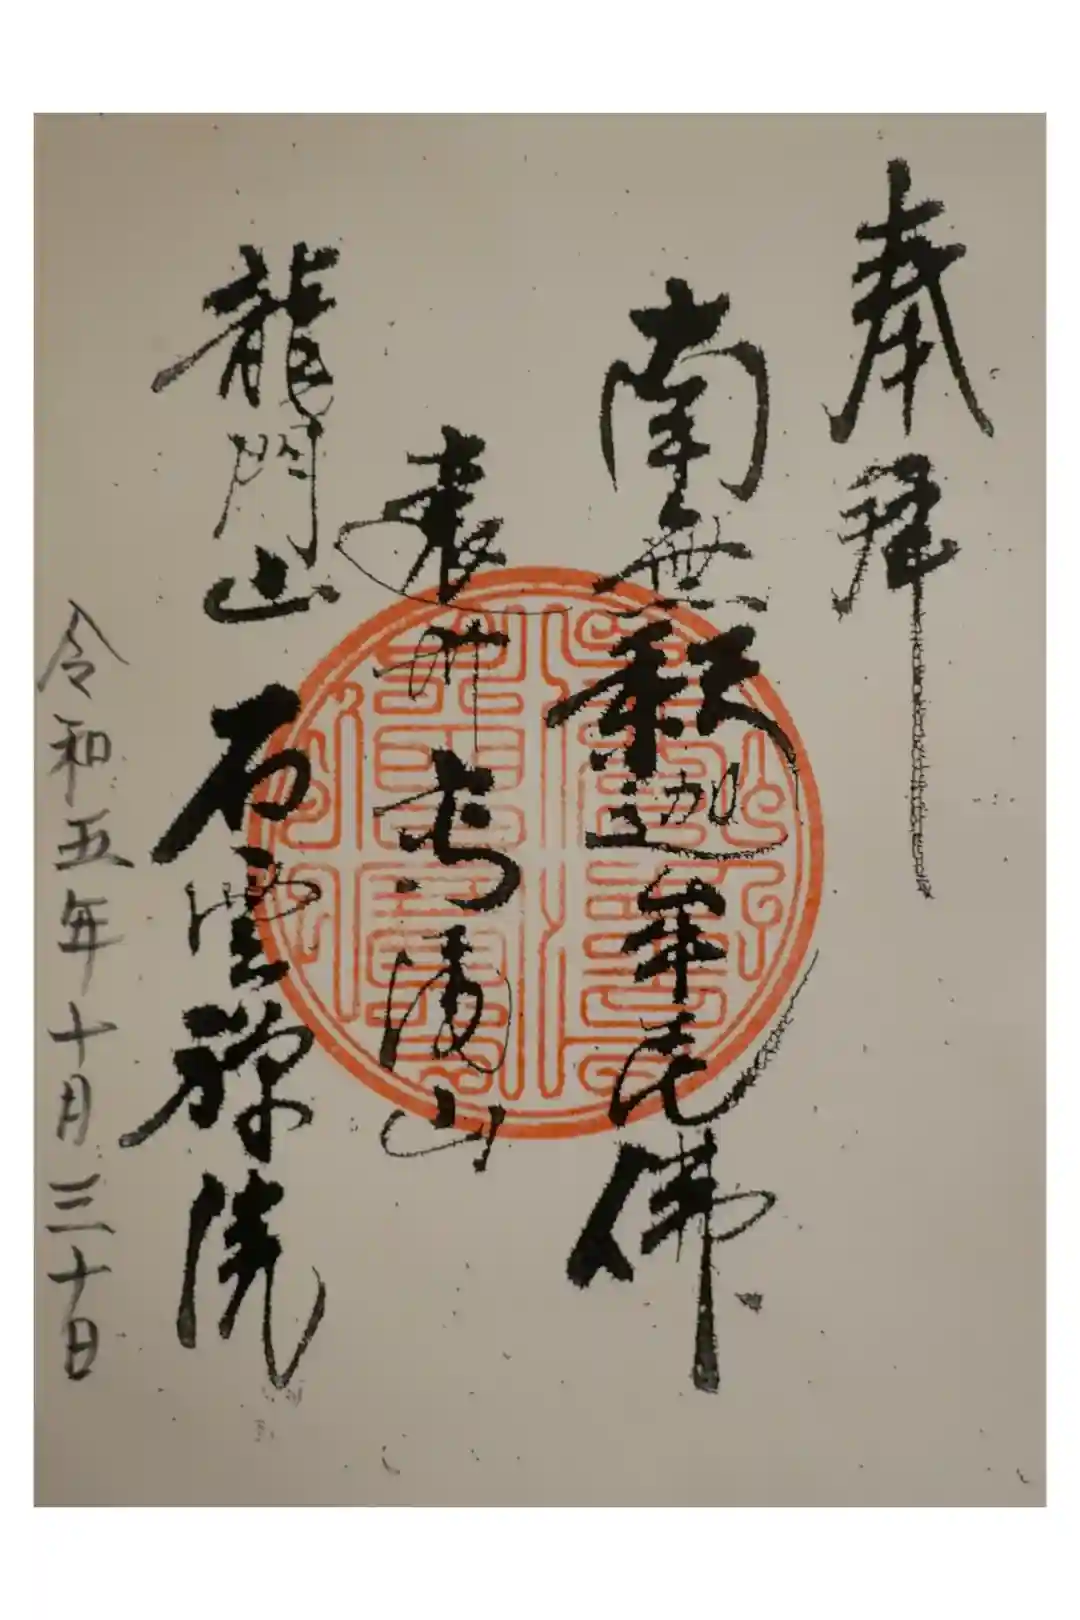 奉拝
南無釈迦牟尼佛
遠州高尾山
龍門山 石雲禅院
令和五年十月三十日